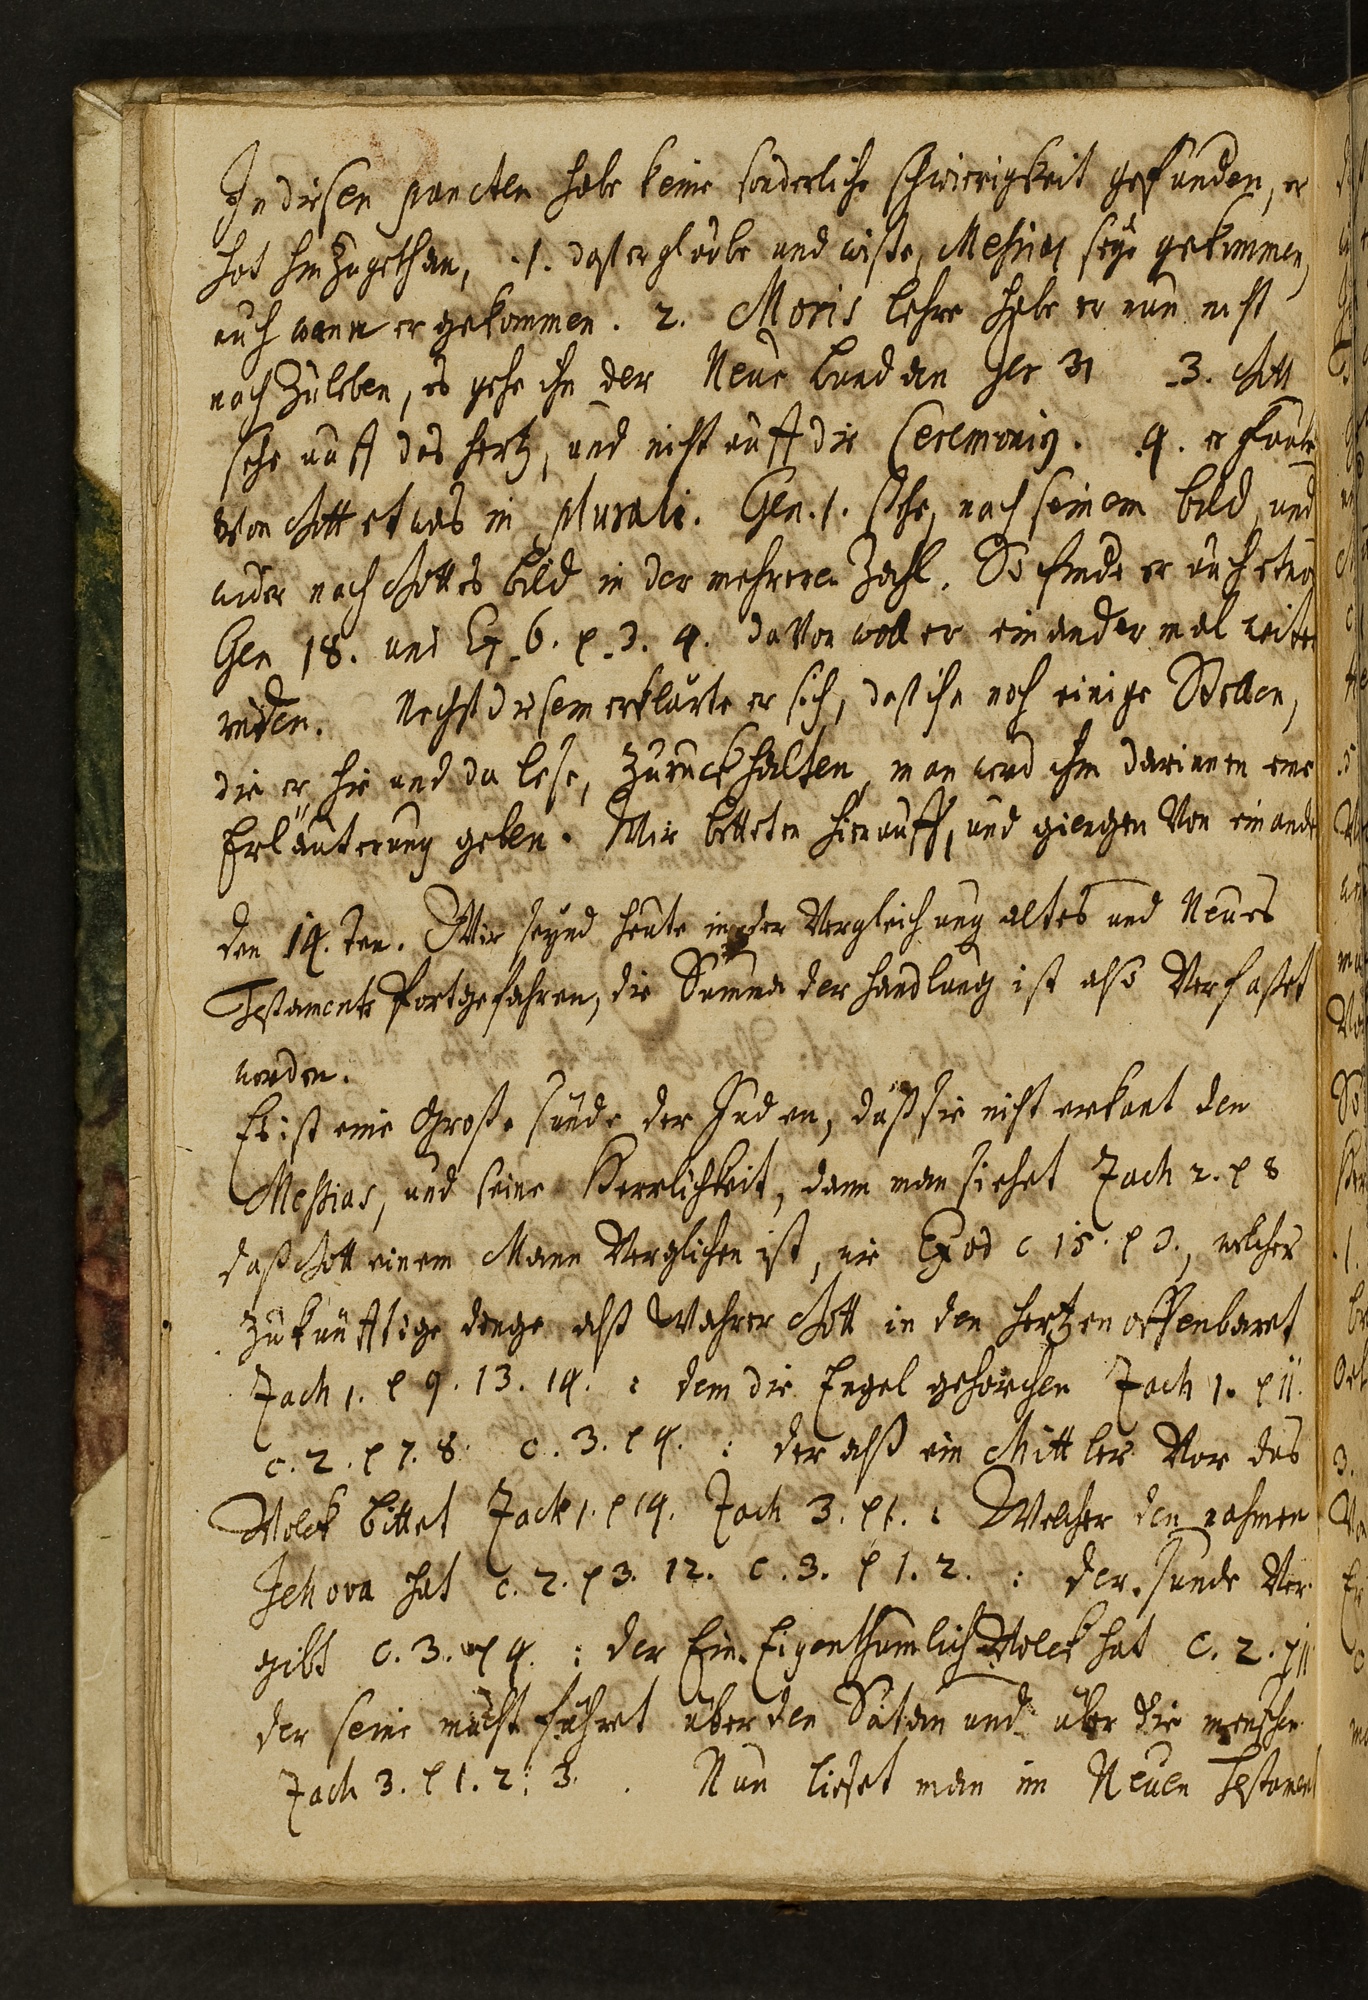 In disen puncten habe keine sonderliche schwirigkeit gefunden, er
hat hinzugethan, .1. dass er glaube und wisse, Messias seye gekommen,
auch wann er gekommen. 2. Mosis lehre habe er nun nicht
nach zuleben, es gehe ihn der Neue bund an Jer 31 .3. Gott
sehe auff das hertz, und nicht auff die Ceremonien. .4. er glaube
Von Gott etwas in plurali. Gen. 1. stehe, nach seinem bild, und
wider nach Gottes bild in der mehreren Zahl. So finde er auch etwas
Gen 18. und Ex. 6. p. 3. 4. da Von woll er ein ander mal weiter
reden. Nechst disem erklärte er sich, dass ihn noch einige Stellen,
die er hie und da lese, zuruckhalten, man werd ihm darinnen eine
Erläuterung geben. Mir betteten hierauff, und giengen Von einander
den 14. ten. Wir seynd heute in der Vergleichung altes und Neues
Testaments fortgefahren, die Summa der handlung ist also Verfasset
worden.
Es ist eine Grosse sünde der Juden, dass sie nicht erkant den
Messias, und seine Herrlichkeit, dann man siehet Zach 2. p 8
dass Gott einem Mann Verglichen ist, wie Exod c 15. p 3., welcher
zukünfftige dinge alss Wahrer Gott in den hertzen offenbaret
Zach 1. p 9. 13. 14. : dem die Engel gehorchen Zach 1. p 11.
c. 2. p 7. 8. c. 3. p 4. : der alss ein Mittler Vor das
Volck bittet Zach 1. p 14. Zach 3. p 1. : Welcher den nahmen
Jehova hat c. 2. p 3. 12. c. 3. p 1. 2. : der sünde Ver-
gibt c. 3. p 4. : der Ein Eigenthumlich Volck hat c. 2. p 11
der seine macht führet über den Satan und über die menschen
Zach 3. p 1. 2. 3. . Nun lieset man im Neuen Testament